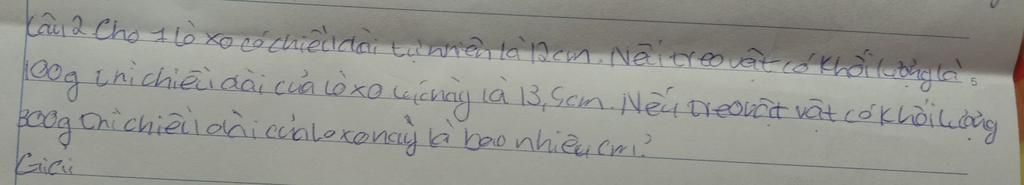 Câu 2 Cho 1 lò xo có chiều dài tự nhiên là 12cm. Nếu treo vật có khối lượng là
100g thì chiều dài của lò xo lúc này là 13,5cm. Nếu treo vật vật có khối lượng
300g thì chiều dài của lo xo này là bao nhiêu cm?
Giải